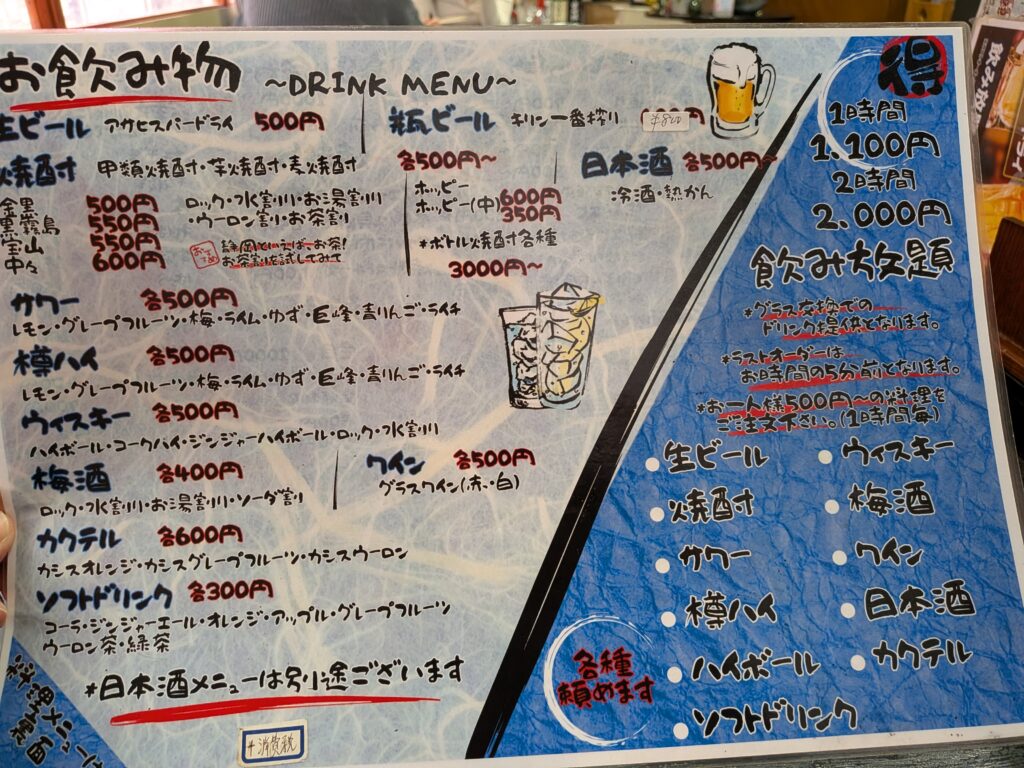 お飲み物 ~DRINK MENU~
生ビール アサヒスーパードライ 500円
瓶ビール キリン一番搾り ¥820
焼酎 甲類焼酎・芋焼酎・麦焼酎 各500円~
金黒 500円
黒霧島 550円
宝山 550円
中々 600円
ロック・水割り・お湯割り
・ウーロン割・お茶割
静岡といえばーお茶!
お茶割を試してみて
ホッピー 600円
ホッピー(中) 350円
*ボトル焼酎各種
3000円~
日本酒 各500円~
冷酒・熱かん
サワー 各500円
レモン・グレープフルーツ・梅・ライム・ゆず・巨峰・青りんご・ライチ
樽ハイ 各500円
レモン・グレープフルーツ・梅・ライム・ゆず・巨峰・青りんご・ライチ
ウィスキー 各500円
ハイボール・コークハイ・ジンジャーハイボール・ロック・水割り
梅酒 各400円
ロック・水割り・お湯割り・ソーダ割り
ワイン 各500円
グラスワイン(赤、白)
カクテル 各600円
カシスオレンジ・カシスグレープフルーツ・カシスウーロン
ソフトドリンク 各300円
コーラ・ジンジャーエール・オレンジ・アップル・グレープフルーツ
ウーロン茶・緑茶
*日本酒メニューは別途ございます
+消費税
料理メニュー
裏面
得
1時間
1.100円
2時間
2.000円
飲み放題
*グラス交換での
ドリンク提供となります。
*ラストオーダーは
お時間の5分前となります。
*お一人様500円~の料理を
ご注文下さい。(1時間毎)
●生ビール
●焼酎
●サワー
●樽ハイ
●ハイボール
●ソフトドリンク
●ウィスキー
●梅酒
●ワイン
●日本酒
●カクテル
各種
頼めます